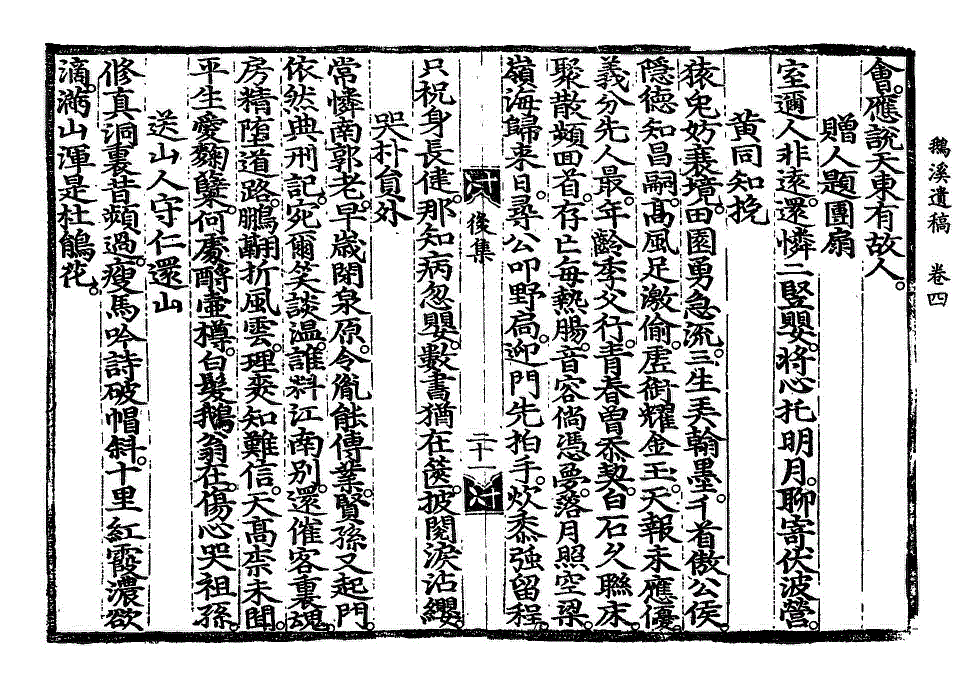 鵝溪遺稿　卷四
會。應說天東有故人。
贈人題團扇
室邇人非遠。還憐二竪嬰。將心托明月。聊寄伏波營。
黃同知挽
猿兔妨蓑境。田園勇急流。三生美翰墨。千首傲公侯。
隱德知昌嗣。高風足激偷。虛衘耀金玉。天報未應優。
義分先人最。年齡季父行。靑春曾忝契。白石久聯床。
聚散頻回首。存亡每熱腸。音容倘憑夢。落月照空梁。
嶺海歸來日。尋公叩野扃。迎門先拍手。炊黍強留程。
後集
二十一
只祝身長健。那知病忽嬰。數書猶在篋。披閱淚沾纓。
哭朴貟外
常憐南郭老。早歲閉泉原。令胤能傳業。賢孫又起門。
依然典刑記。宛爾笑談溫。誰料江南別。還催客裏魂。
房精墮道路。鵬翮折風雲。理爽知難信。天高柰未聞。
平生愛麴糱。何處酹壺樽。白髮鵝翁在。傷心哭祖孫。
送山人守仁還山
修眞洞裏昔頻過。瘦馬吟詩破帽斜。十里紅霞濃欲
滴。滿山渾是杜鵑花。